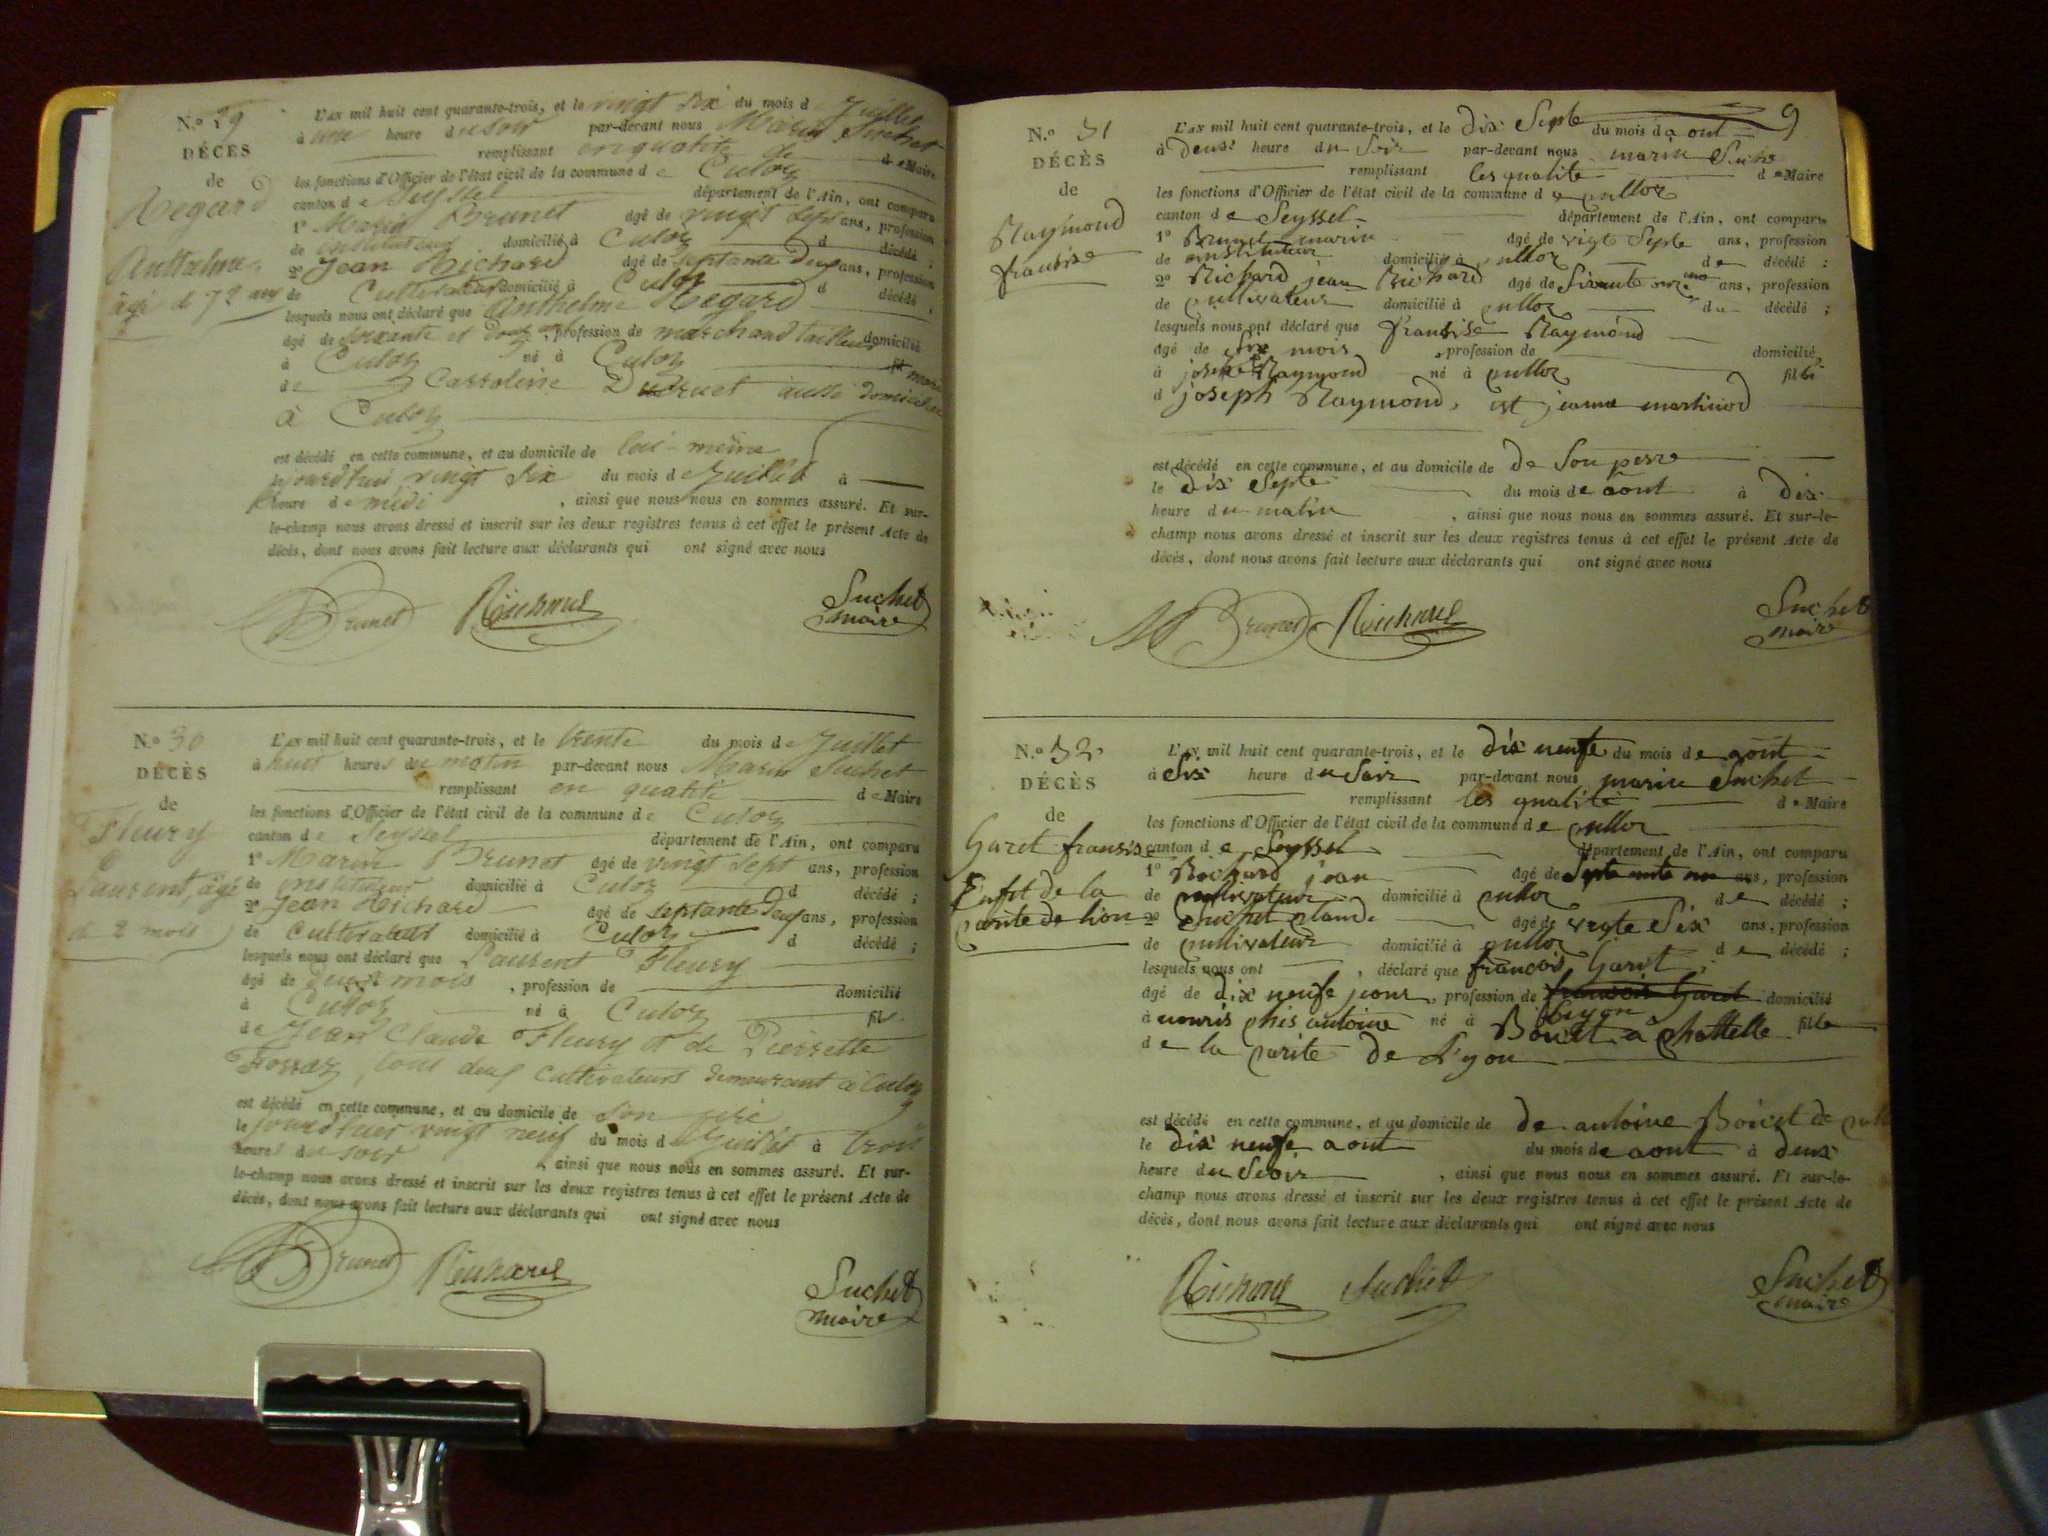 N.o 29
DÉCÈS
de
Regard
Anthelme
âgé de 72 ans
L'AN mil huit cent quarante-trois, et le vingt six du mois d Juillet
à une heure du soir par-devant nous Marin Suchet
remplissant en qualité de d e Maire
les fonctions d'Officier de l'état civil de la commune d e Culoz
canton d e Seyssel département de l'Ain, ont comparu
1o Marin Brunet âgé de vingt sept ans, profession
de instituteur domicilié à Culoz d décédé ;
2o Jean Richard âgé de septante deux ans, profession
de Cultivateur domicilié à Culoz d décédé ;
lesquels nous ont déclaré que Anthelme Regard
âgé de soixante et douze ans, profession de marchand tailleur domicilié
à Culoz né à Culoz
de Carroline Ducruet aussi domiciliée
à Culoz
est décédé en cette commune, et au domicile de lui-même
le jourd'hui vingt six du mois de Juillet à
heure de midi , ainsi que nous nous en sommes assuré. Et sur-
le-champ nous avons dressé et inscrit sur les deux registres tenus à cet effet le présent Acte de
décès, dont nous avons fait lecture aux déclarants qui ont signé avec nous
Brunet Richard Suchet
maire
N.o 30
DÉCÈS
de
Fleury
Laurent, âgé
de 2 mois
L'AN mil huit cent quarante-trois, et le trente du mois de Juillet
à huit heures du matin par-devant nous Marin Suchet
remplissant en qualité d e Maire
les fonctions d'Officier de l'état civil de la commune d e Culoz
canton d e Seyssel département de l'Ain, ont comparu
1o Marin Brunet âgé de vingt sept ans, profession
de instituteur domicilié à Culoz d décédé ;
2o Jean Richard âgé de septante deux ans, profession
de Cultivateur domicilié à Culoz d décédé ;
lesquels nous ont déclaré que Laurent Fleury
âgé de deux mois , profession de domicilié
à Culoz né à Culoz fils
de Jean Claude Fleury et de Pierrette
tous deux cultivateurs demeurant à Culoz
est décédé en cette commune, et au domicile de son père
le jourd'hier vingt neuf du mois de Juillet à trois
heures du soir , ainsi que nous nous en sommes assuré. Et sur-
le-champ nous avons dressé et inscrit sur les deux registres tenus à cet effet le présent Acte de
décès, dont nous avons fait lecture aux déclarants qui ont signé avec nous
Brunet Richard Suchet
maire
9
N.o 31
DÉCÈS
de
Raymond
fransise
L'AN mil huit cent quarante-trois, et le dix Septe du mois d aout
à deux heure du Soir par-devant nous marin Suche
remplissant les qualite d e Maire
les fonctions d'Officier de l'état civil de la commune d e culloz
canton d e Seyssel département de l'Ain, ont comparu
1o Brunet marin âgé de vigt Septe ans, profession
de instituteur domicilié à culloz de décédé ;
2o Richard jean Richard âgé de Sixante onze ans, profession
de cultivateur domicilié à culloz du décédé ;
lesquels nous ont déclaré que fransise Raymond
âgé de Six mois , profession de domicilié
à joseph Raymond né à culloz fille
d joseph Raymond, est jeanne martinod
est décédé en cette commune, et au domicile de de Son perre
le dix Septe du mois de aout à dix
heure du matin , ainsi que nous nous en sommes assuré. Et sur-le-
champ nous avons dressé et inscrit sur les deux registres tenus à cet effet le présent Acte de
décès, dont nous avons fait lecture aux déclarants qui ont signé avec nous
M Brunet Richard Suchet
maire
N.o 32
DÉCÈS
de
Garet fransise
Enfet de la
carite de lion
L'AN mil huit cent quarante-trois, et le dix neufe du mois de aout
à Six heure du Soir par-devant nous marin Suchet
remplissant les qualite d e Maire
les fonctions d'Officier de l'état civil de la commune d e culloz
canton d e Seyssel département de l'Ain, ont comparu
1o Richard jean âgé de Septe ante ans, profession
de cultivateur domicilié à culloz de décédé ;
2o Suchet claude âgé de vegte Six ans, profession
de cultivateur domicilié à culloz de décédé ;
lesquels nous ont , déclaré que françois Garet
âgé de dix neufe jour, profession de fransois Garet domicilié
à nouris ches antoine né à Lyon
de la carite de Lyon
est décédé en cette commune, et au domicile de de antoine
le dix neufe aout du mois de aout à deux
heure du Seoir , ainsi que nous nous en sommes assuré. Et sur-le-
champ nous avons dressé et inscrit sur les deux registres tenus à cet effet le présent Acte de
décès, dont nous avons fait lecture aux déclarants qui ont signé avec nous
Richard Suchet Suchet
maire